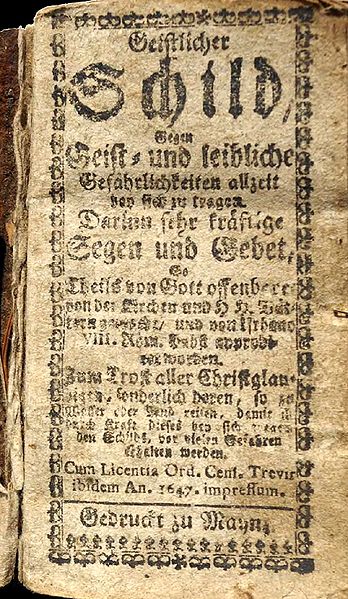 Geistlicher
Schild,
Gegen
Geist- und leibliche
Gefährlichkeiten allzeit
bey sich zu tragen.
Darinn sehr kräftige
Segen und Gebet,
So
Theils von Gott offenbere
von der Kirchen und H H. Vät-
tern gemacht/ und von Urbano
VIII. Röm. Pabst approbi
ret worden.
Zum Trost aller Christglau-
bigen, sonderlich deren, so zu
Wasser oder Land reisen, damit
durch Kraft dieses bey sich
den Schilds, vor vielen Gefahren
erhalten werden.
Cum Licentia Ord. Cens. Trevir
ibidem An. 1647. impressum.
Gedruckt zu Maynz